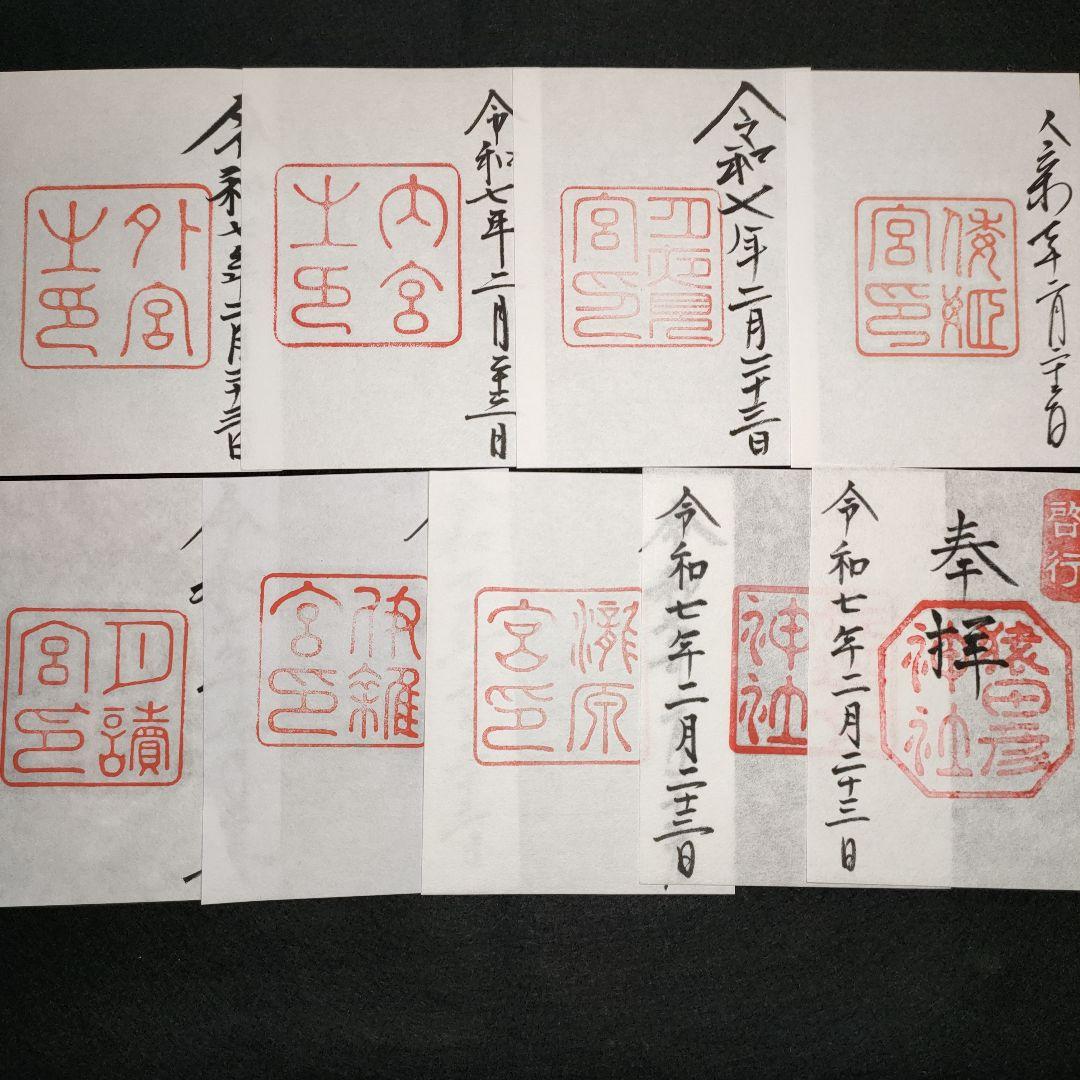 外宮
之印
令和七年二月二十三日
内宮
之印
令和七年二月二十三日
月夜見
宮印
令和七年二月二十三日
倭姫
宮印
令和七年二月二十三日
月讀
宮印
伊雜
宮印
瀧原
宮印
令和七年二月二十三日
神社
令和七年二月二十三日
奉拝
啓行
猿田彦
神社